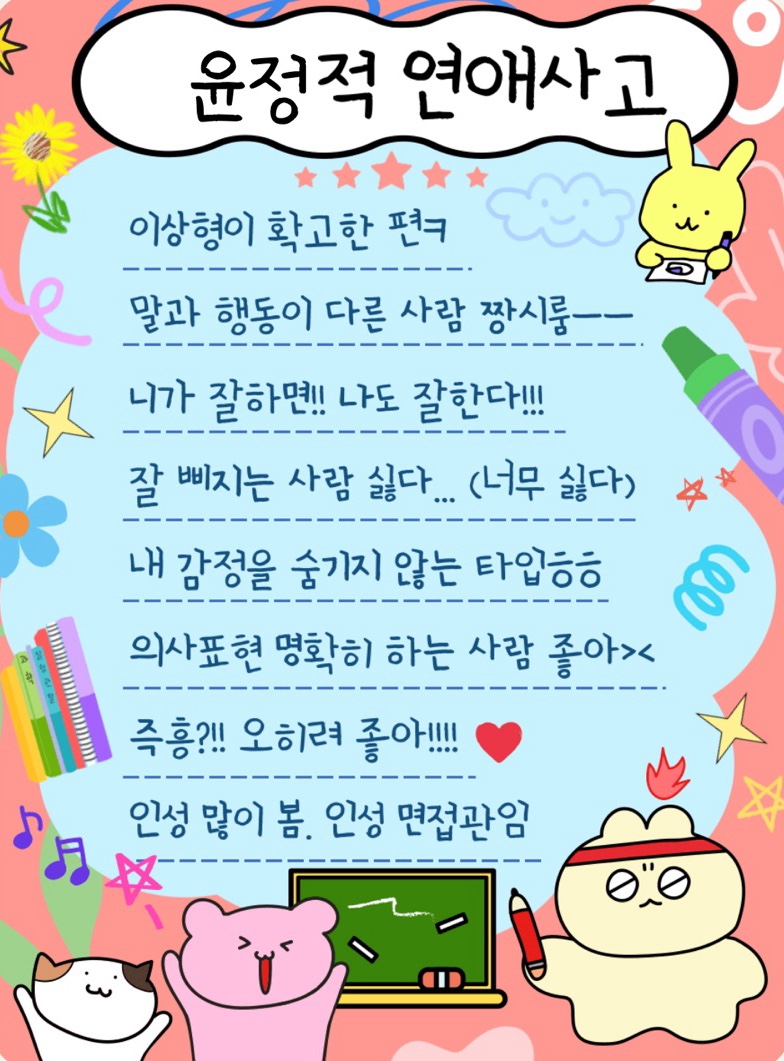 윤정적 연애사고
이상형이 확고한 편ㅋ
말과 행동이 다른 사람 짱시룸ㅡㅡ
니가 잘하면!! 나도 잘한다!!!
잘 삐지는 사람 싫다... (너무 싫다)
내 감정을 숨기지 않는 타입ㅎㅎ
의사표현 명확히 하는 사람 좋아><
즉흥?!! 오히려 좋아!!!!
인성 많이 봄. 인성 면접관임